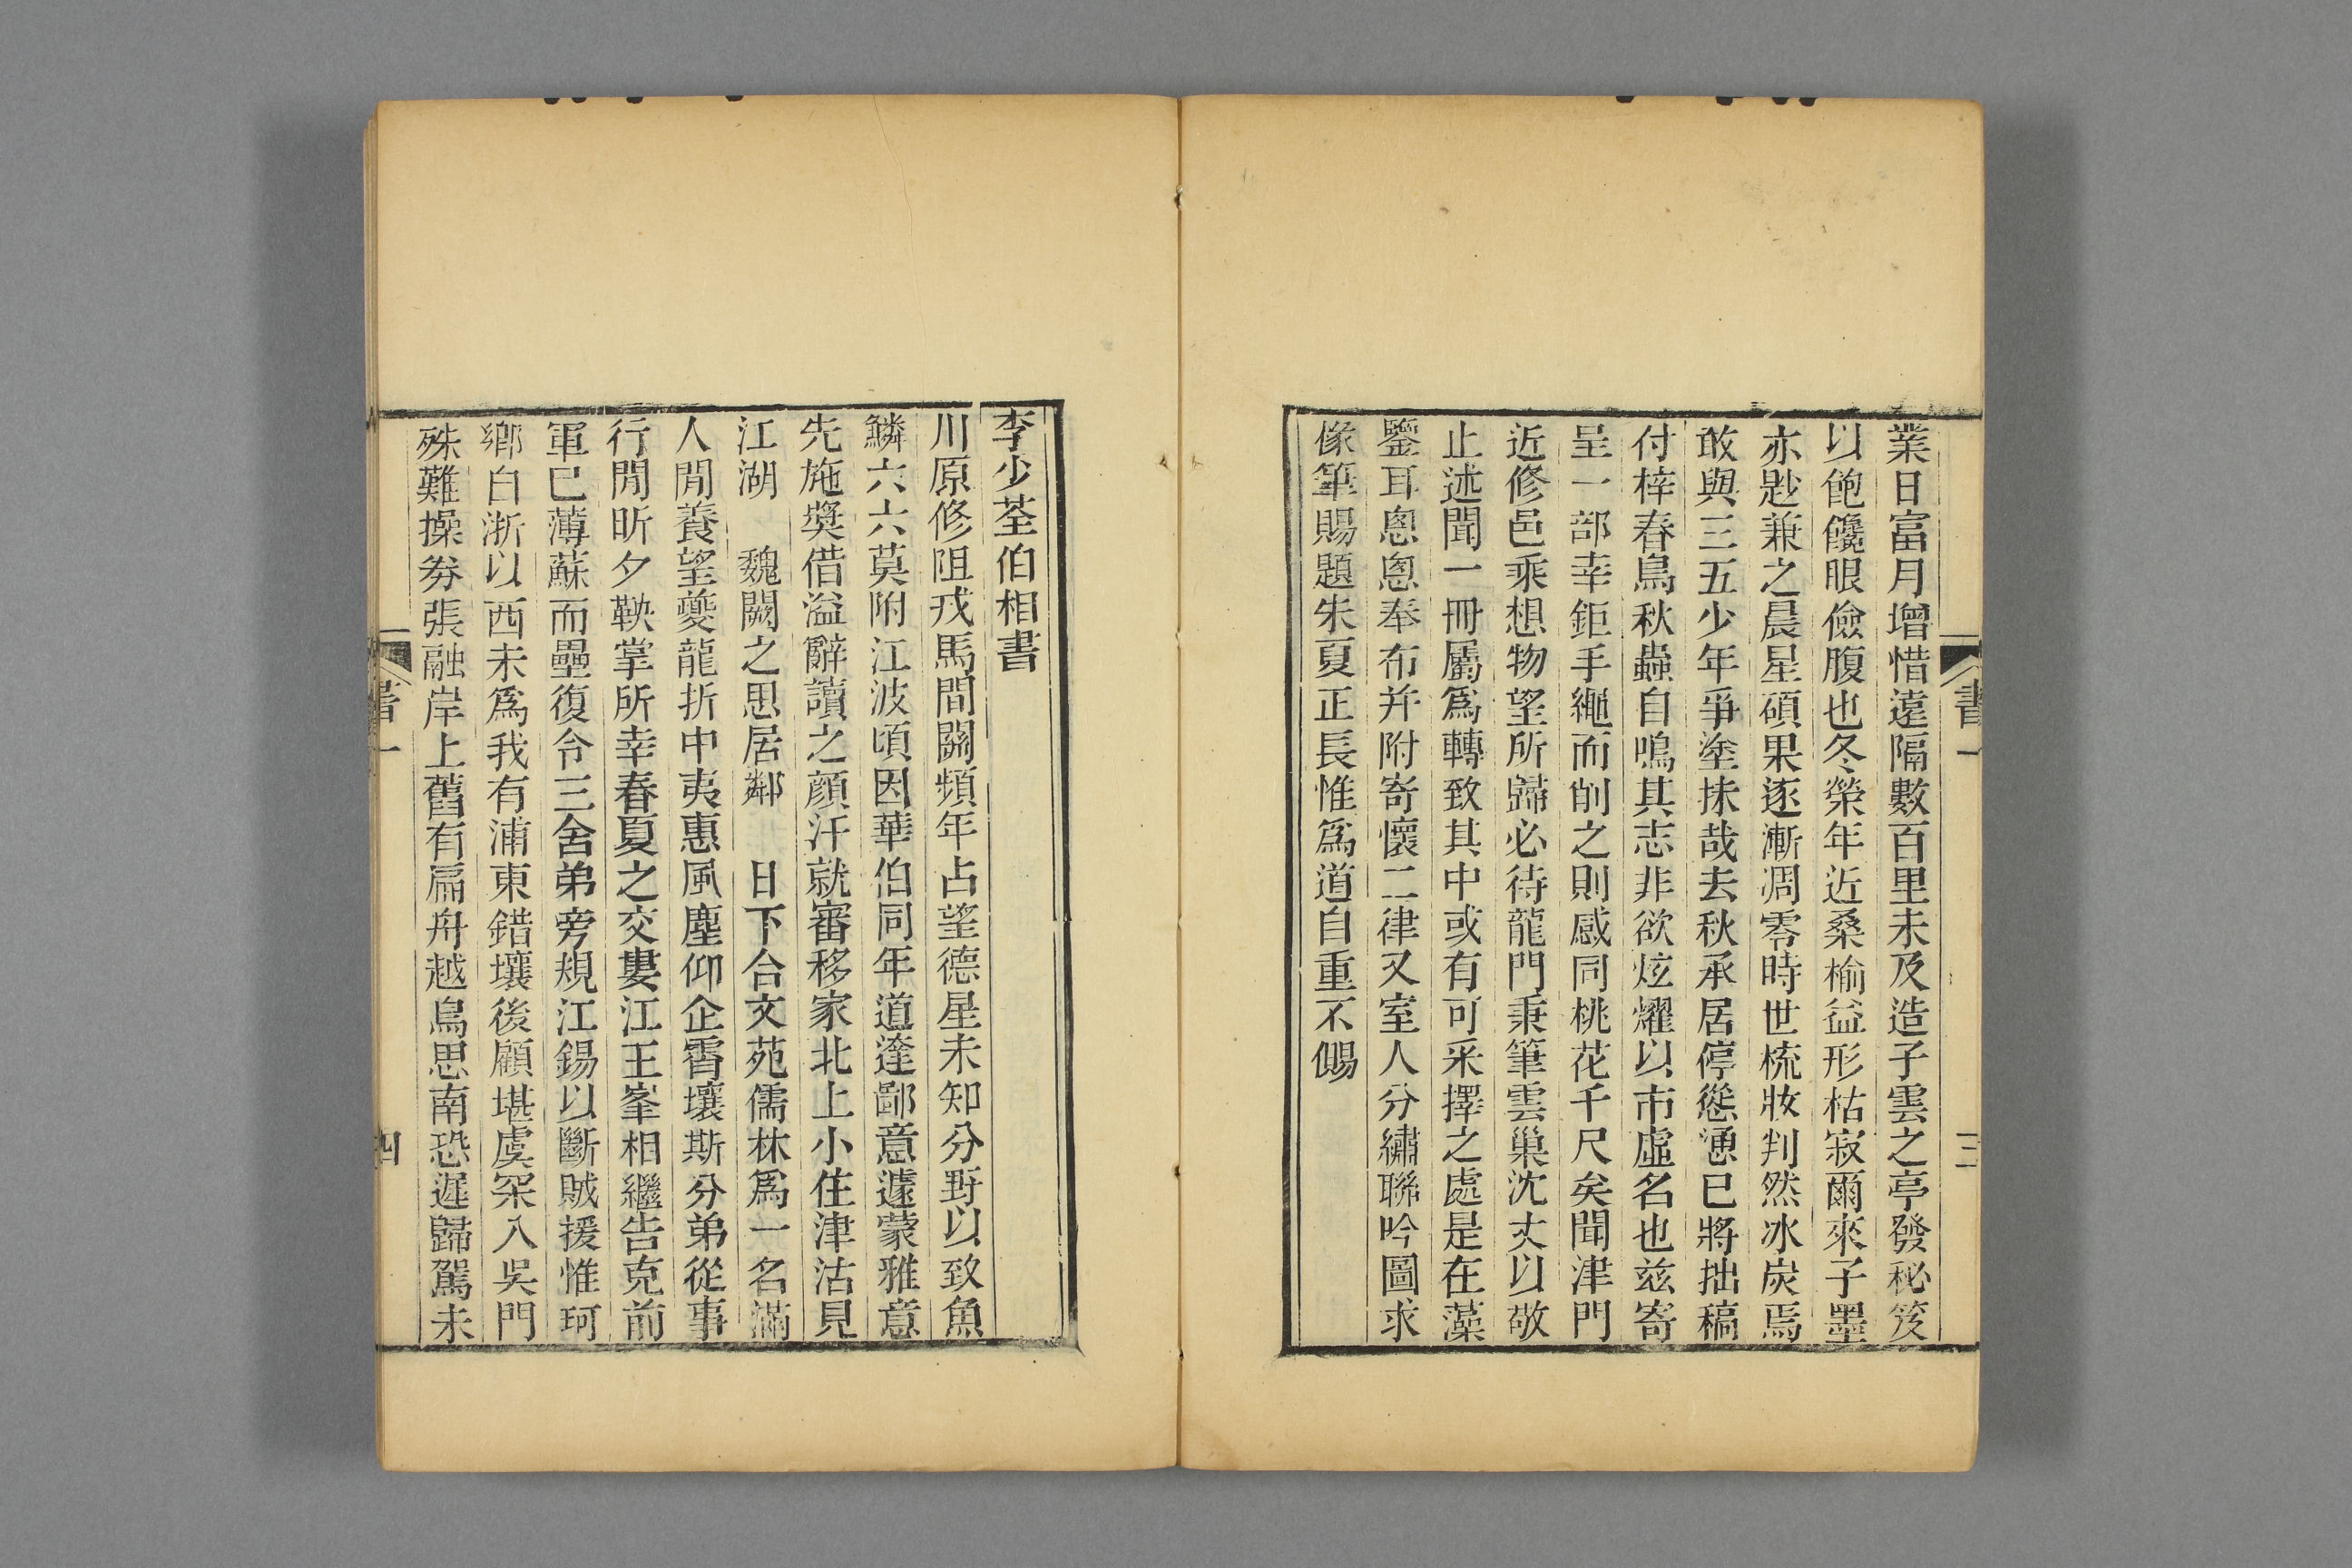 業日富月增惜遠隔數百里未及造子雲之亭發秘笈
以飽饞眼儉腹也冬榮年近桑榆益形枯寂爾來子墨
亦尠兼之晨星碩果逐漸凋零時世梳妝判然冰炭焉
敢與三五少年爭塗抹哉去秋承居停慫慂已將拙稿
付梓春鳥秋蟲自鳴其志非欲炫燿以市虛名也茲寄
呈一部幸鉅手繩而削之則感同桃花千尺矣聞津門
近修邑乘想物望所歸必待龍門秉筆雲巢沈丈以敬
止述聞一冊屬爲轉致其中或有可采擇之處是在藻
鑒耳恖恖奉布并附寄懷二律又室人分繡聯吟圖求
像筆賜題朱夏正長惟爲道自重不儩
書一
三
李少荃伯相書
川原修阻戎馬間關頻年占望德星未知分野以致魚
鱗六六莫附江波頃因華伯同年道達鄙意遽蒙雅意
先施獎借溢辭讀之顏汗就審移家北上小住津沽見
江湖 魏闕之思居鄰 日下合文苑儒林爲一名滿
人閒養望夔龍折中夷惠風塵仰企霄壤斯分弟從事
行閒昕夕鞅掌所幸春夏之交婁江王峯相繼告克前
軍已薄蘇而壘復令三舍弟旁規江錫以斷賊援惟珂
鄉白浙以西未爲我有浦東錯壤後顧堪虞罙入吳門
殊難操券張融岸上舊有扁舟越鳥思南恐遲歸駕未
書一
四